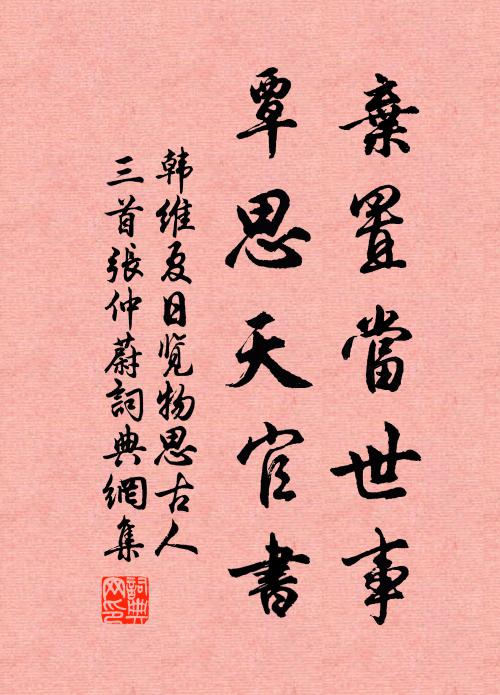 棄置當世事
覃思天官書
韩維夏日览物思古人
三首張仲蔚詞典網集
詞典
网印